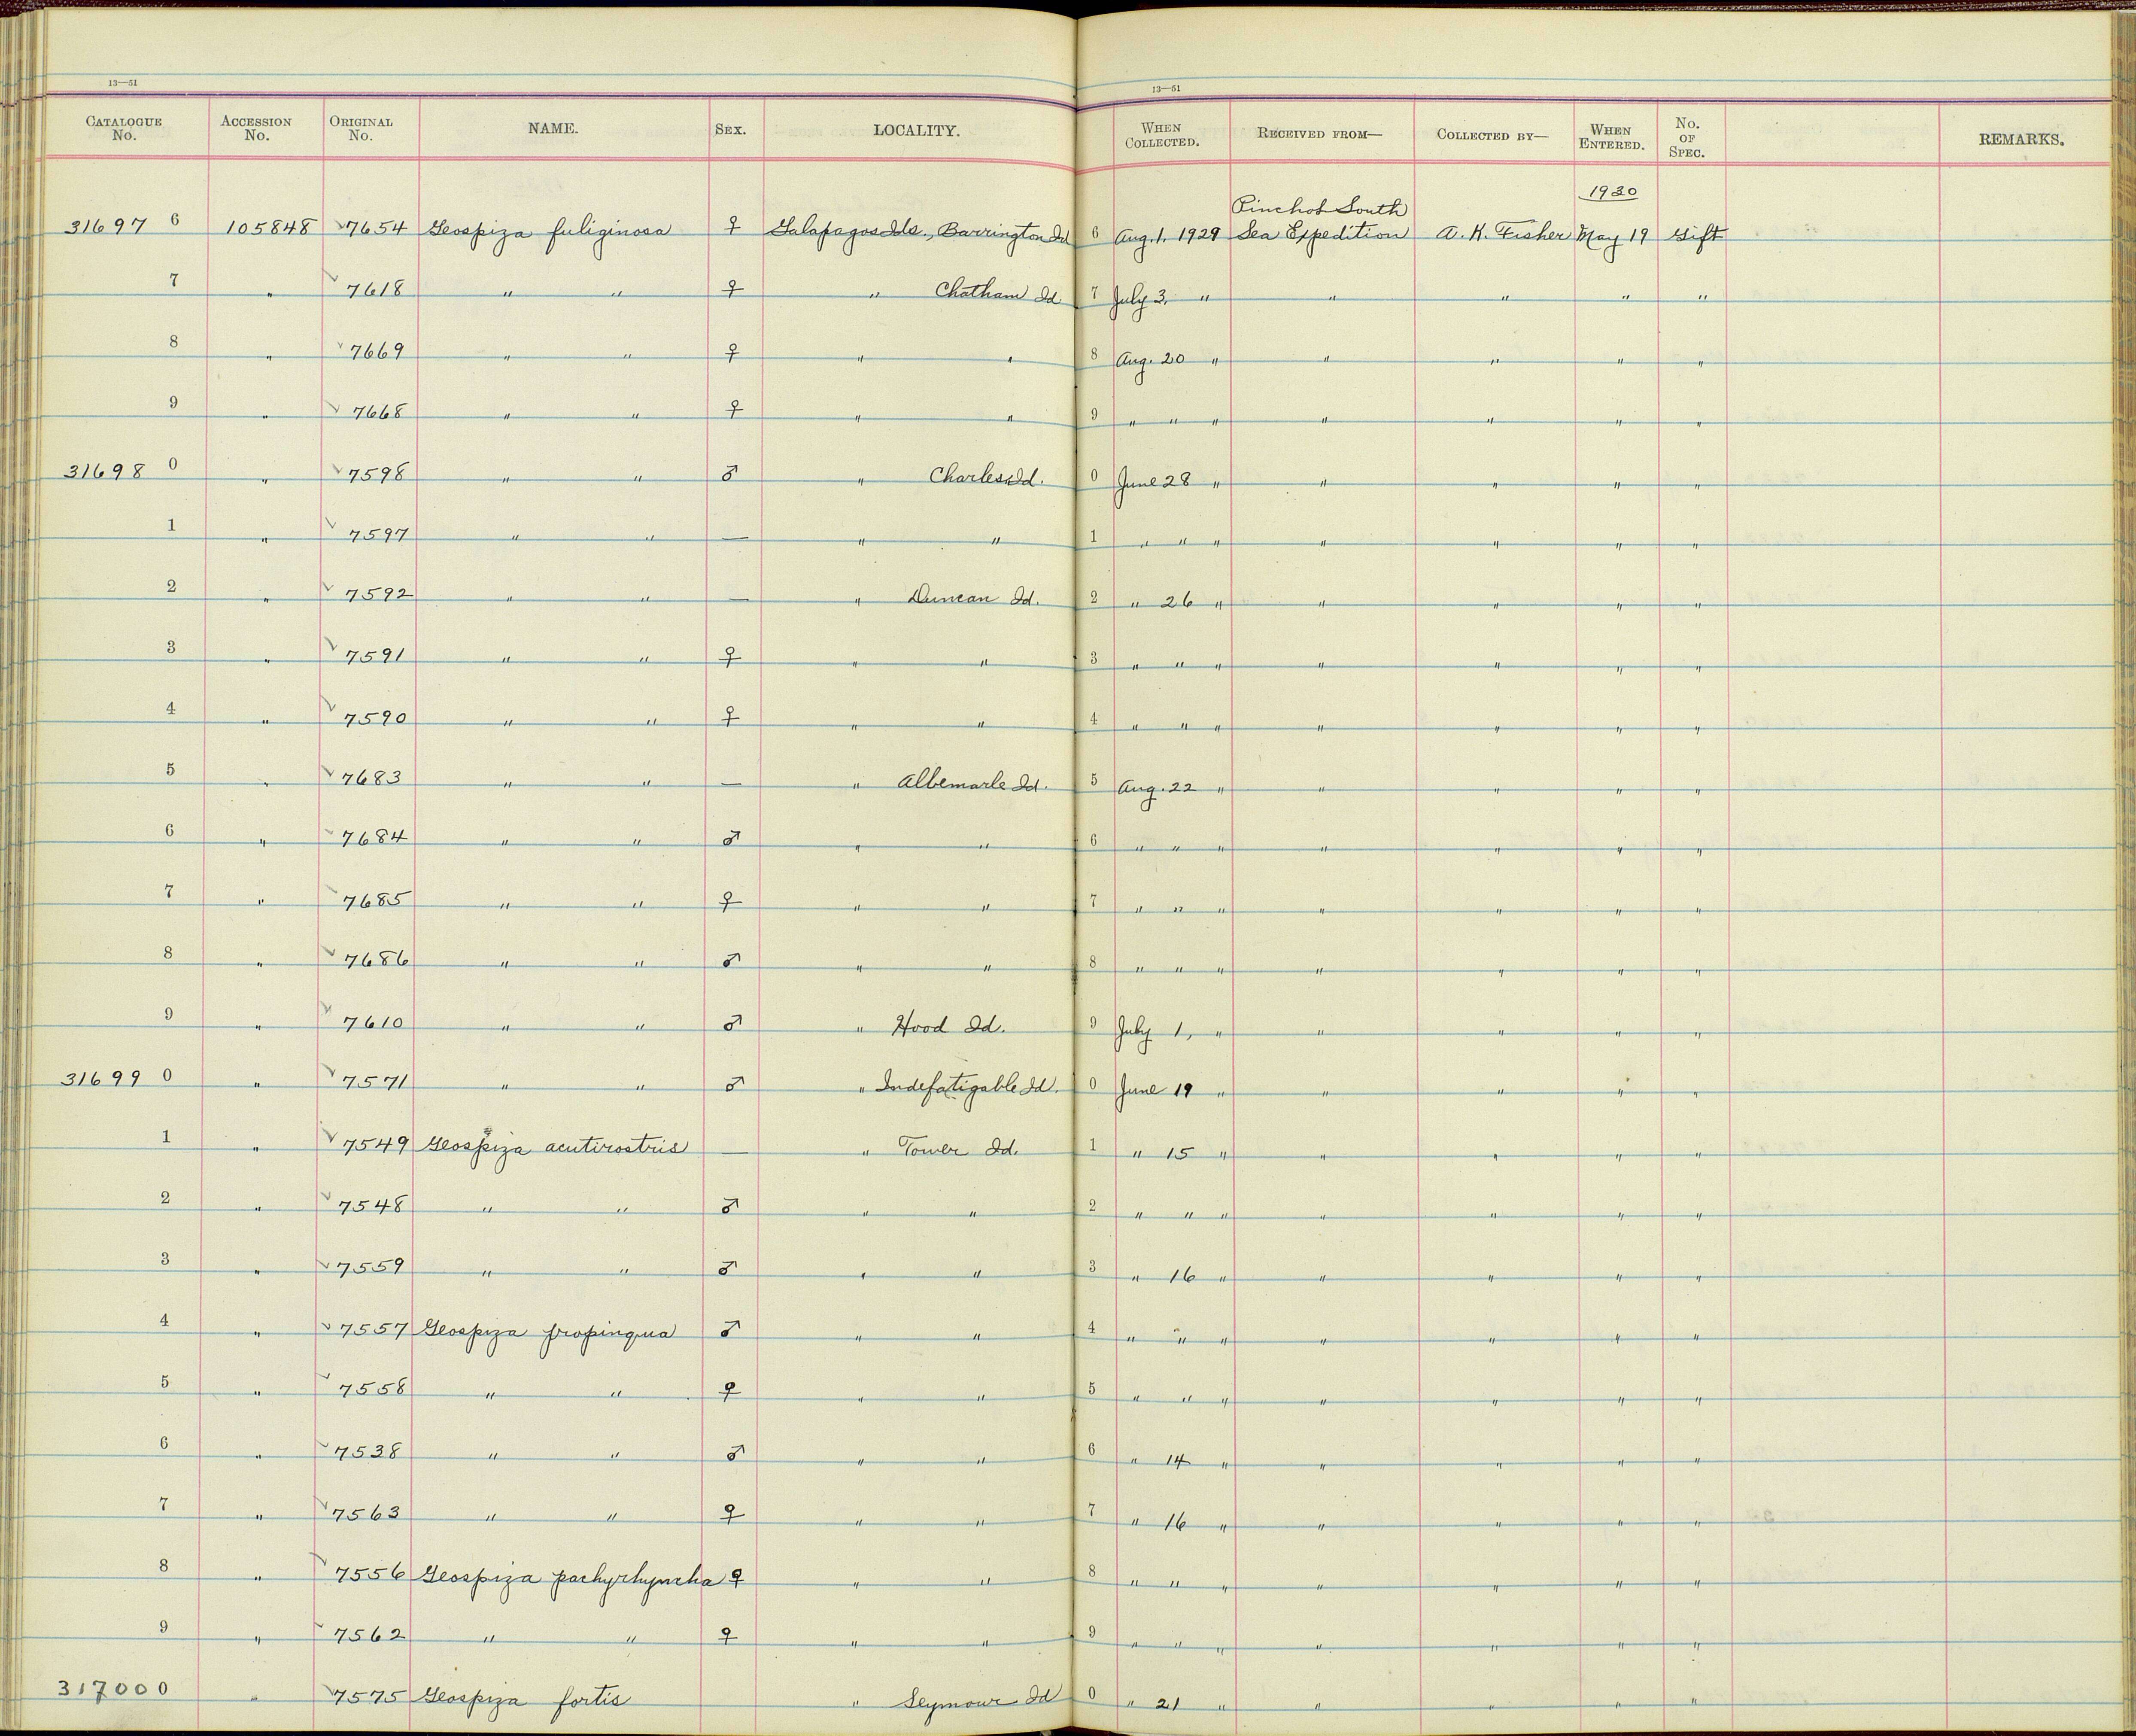 13—51
13—51
CATALOGUE No. ACCESSION No. ORIGINAL No. NAME. SEX. LOCALITY. WHEN COLLECTED. RECEIVED FROM— COLLECTED BY— WHEN ENTERED. No. OF SPEC. REMARKS.
1930
Pinchot South
31697 6 105848 7654 Geospiza fuliginosa ♀ Galapagos Ids., Barrington Id 6 Aug. 1, 1929 Sea Expedition A. K. Fisher May 19 Gift
7 " 7618 " " ♀ " Chatham Id 7 July 3, " " " " "
8 " 7669 " " ♀ " " 8 Aug. 20 " " " " "
9 " 7668 " " ♀ " " 9 " " " " " " "
31698 0 " 7598 " " ♂ " Charles Id. 0 June 28 " " " " "
1 " 7597 " " — " " 1 " " " " " " "
2 " 7592 " " — " Duncan Id. 2 " 26 " " " " "
3 " 7591 " " ♀ " " 3 " " " " " " "
4 " 7590 " " ♀ " " 4 " " " " " " "
5 " 7683 " " — " Albemarle Id. 5 Aug. 22 " " " " "
6 " 7684 " " ♂ " " 6 " " " " " " "
7 " 7685 " " ♀ " " 7 " " " " " " "
8 " 7686 " " ♂ " " 8 " " " " " " "
9 " 7610 " " ♂ " Hood Id. 9 July 1, " " " " "
31699 0 " 7571 " " ♂ " Indefatigable Id. 0 June 19 " " " " "
1 " 7549 Geospiza acutirostris — " Tower Id. 1 " 15 " " " " "
2 " 7548 " " ♂ " " 2 " " " " " " "
3 " 7559 " " ♂ " " 3 " 16 " " " " "
4 " 7557 Geospiza propinqua ♂ " " 4 " " " " " " "
5 " 7558 " " ♀ " " 5 " " " " " " "
6 " 7538 " " ♂ " " 6 " 14 " " " " "
7 " 7563 " " ♀ " " 7 " 16 " " " " "
8 " 7556 Geospiza pachyrhyncha ♀ " " 8 " " " " " " "
9 " 7562 " " ♀ " " 9 " " " " " " "
31700 0 " 7575 Geospiza fortis " Seymour Id 0 " 21 " " " " "